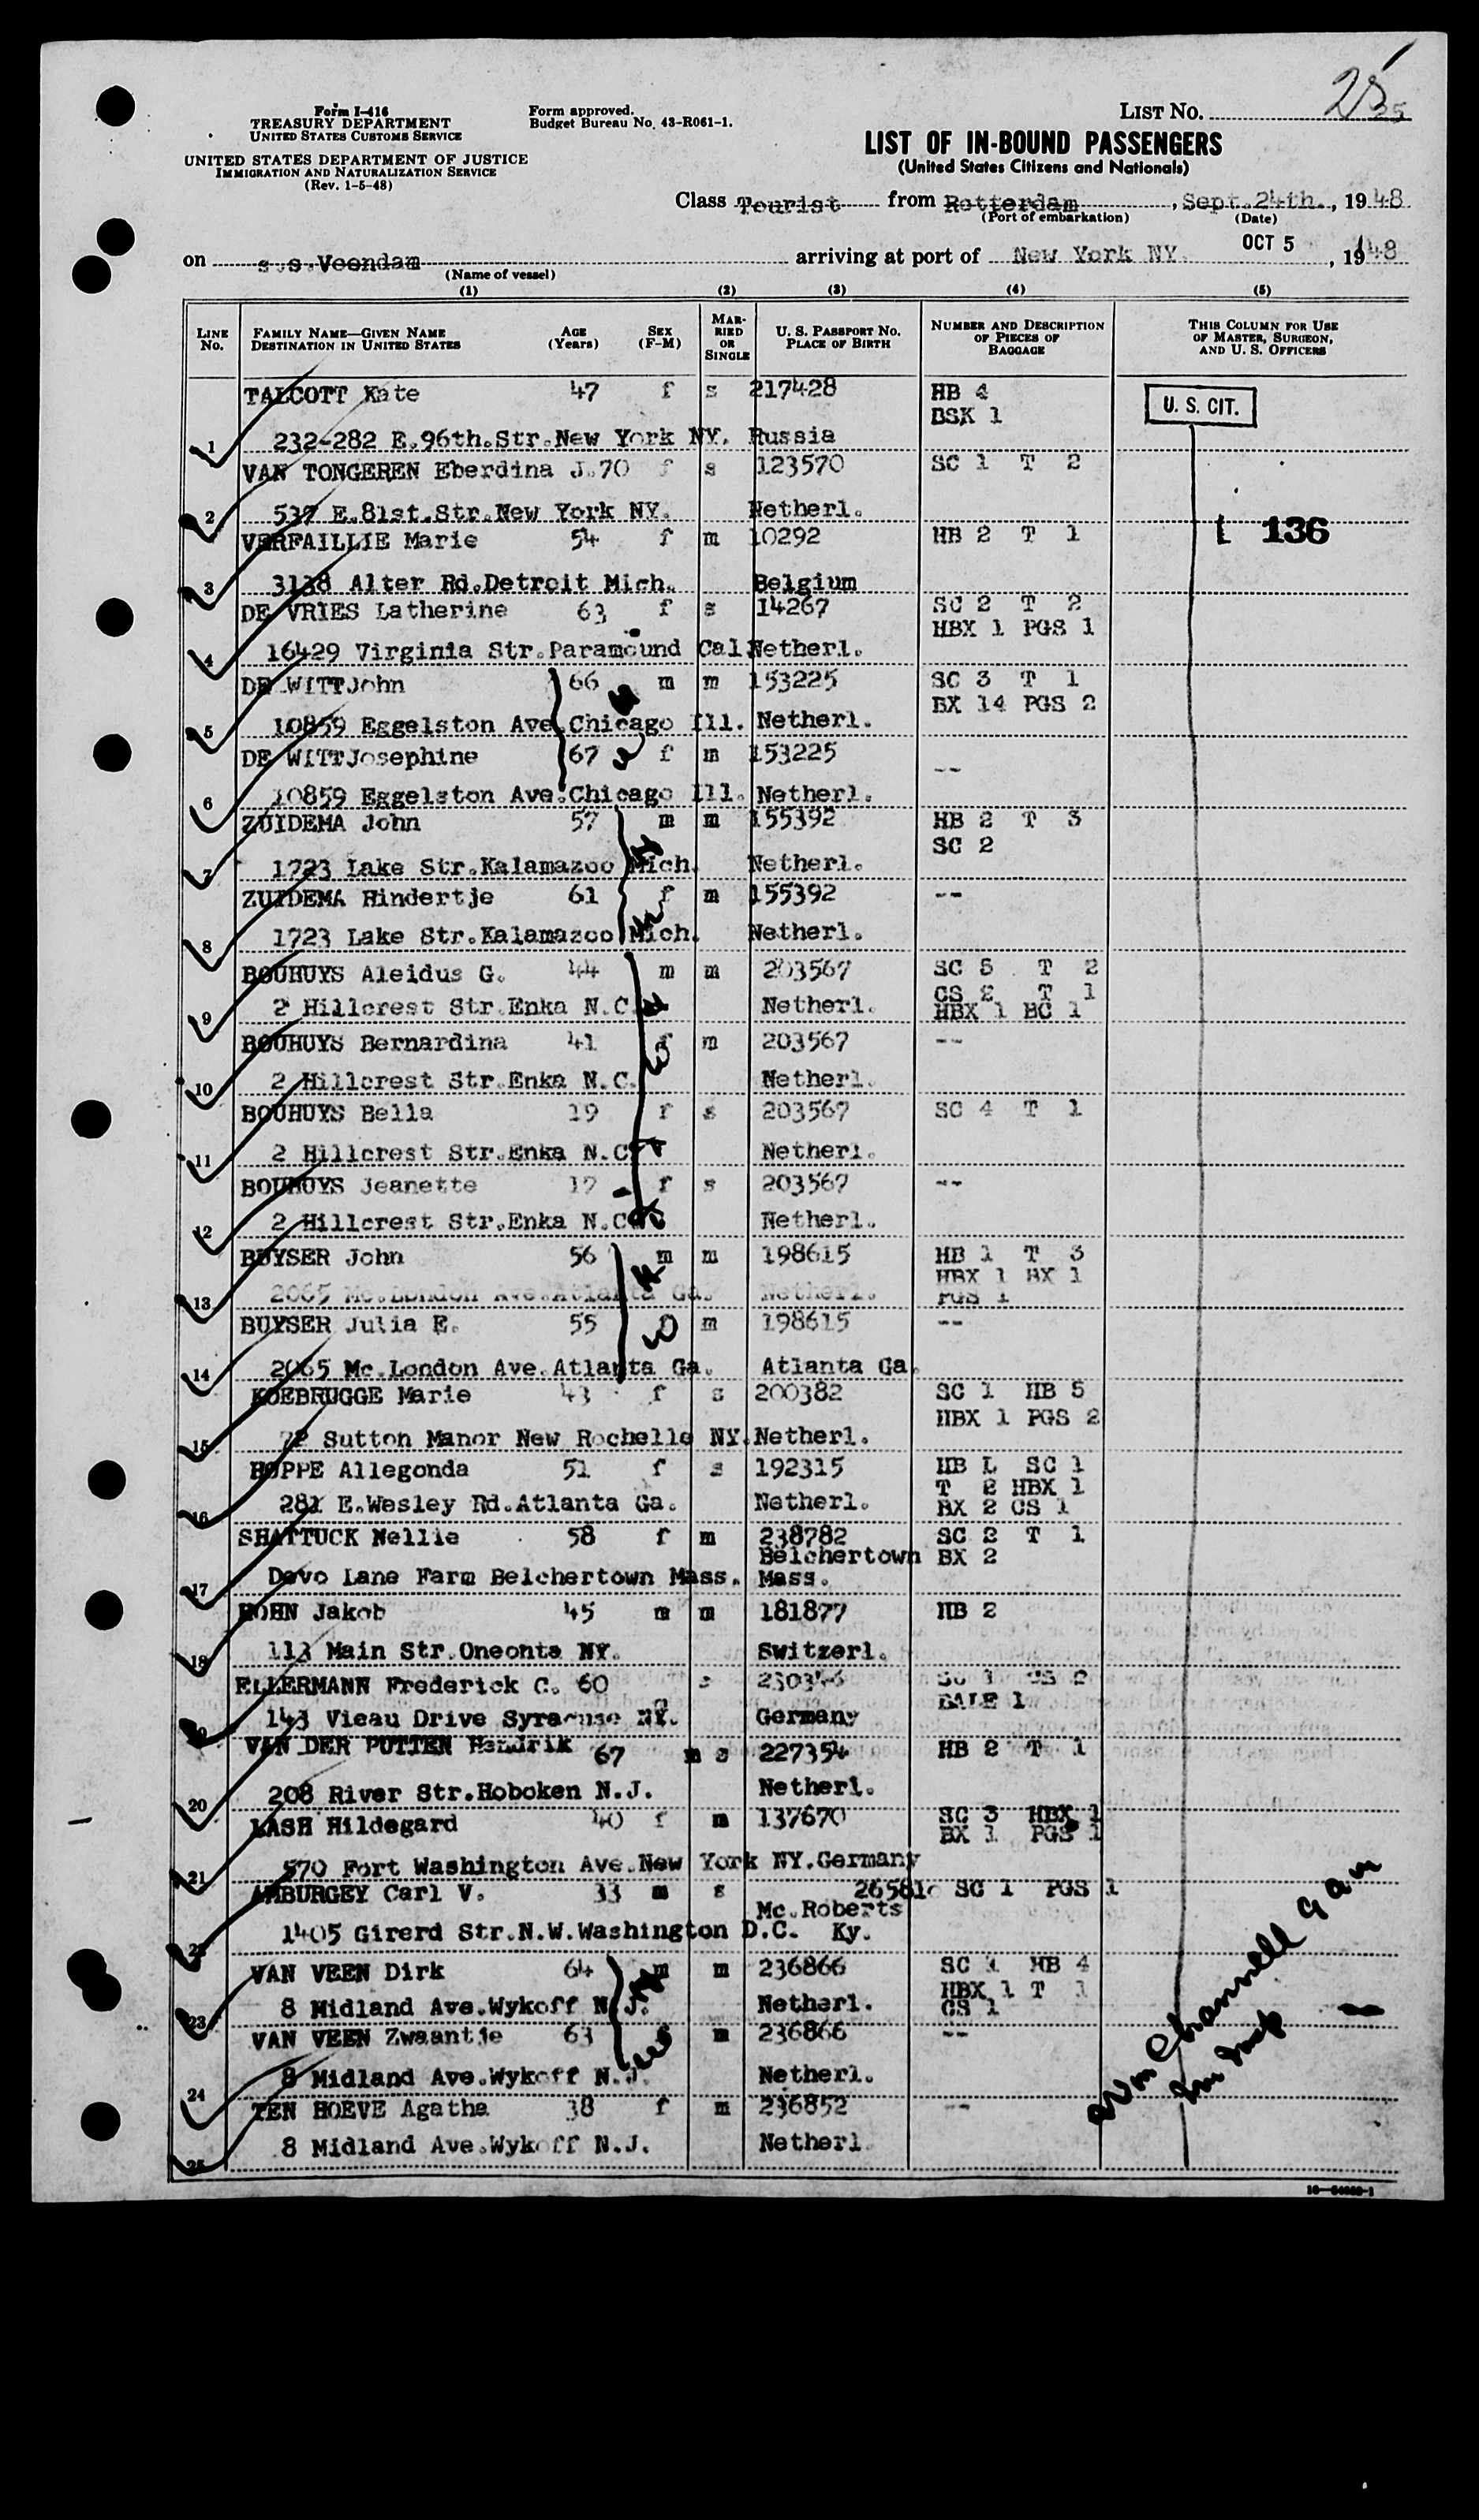 Form I-416
TREASURY DEPARTMENT
UNITED STATES CUSTOMS SERVICE
UNITED STATES DEPARTMENT OF JUSTICE
IMMIGRATION AND NATURALIZATION SERVICE
(Rev. 1-5-48)
Form approved.
Budget Bureau No. 43-R061-1.
LIST No. 25
LIST OF IN-BOUND PASSENGERS
(United States Citizens and Nationals)
Class Tourist from Rotterdam, Sept.24th., 1948
(Port of embarkation) (Date)
on s.s.Veendam arriving at port of New York NY. OCT 5, 1948
(Name of vessel)
(1) (2) (3) (4) (5)
LINE No. FAMILY NAME—GIVEN NAME DESTINATION IN UNITED STATES AGE (Years) SEX (F-M) MARRIED OR SINGLE U. S. PASSPORT NO. PLACE OF BIRTH NUMBER AND DESCRIPTION OF PIECES OF BAGGAGE THIS COLUMN FOR USE OF MASTER, SURGEON, AND U. S. OFFICERS
TALCOTT Kate 47 f s 217428 HB 4
BSK 1
U. S. CIT.
1 232-282 E.96th.Str.New York NY. Russia
VAN TONGEREN Eberdina J.70 f s 123570 SC 1 T 2
2 537 E.81st.Str.New York NY. Netherl.
136
VERFAILLIE Marie 54 f m 10292 HB 2 T 1
3 3138 Alter Rd.Detroit Mich. Belgium
DE VRIES Latherine 63 f s 14267 SC 2 T 2
HBX 1 PGS 1
4 16429 Virginia Str.Paramound Cal Netherl.
DE WITTJohn 66 m m 153225 SC 3 T 1
BX 14 PGS 2
5 10859 Eggelston Ave.Chicago Ill. Netherl.
DE WITTJosephine 67 f m 153225 --
6 10859 Eggelston Ave.Chicago Ill. Netherl.
ZUIDEMA John 57 m m 155392 HB 2 T 3
SC 2
7 1723 Lake Str.Kalamazoo Mich. Netherl.
ZUIDEMA Hindertje 61 f m 155392 --
8 1723 Lake Str.Kalamazoo Mich. Netherl.
BOUHUYS Aleidus G. 44 m m 203567 SC 5 T 2
CS 2 T 1
9 2 Hillcrest Str.Enka N.C. Netherl. HBX 1 BC 1
BOUHUYS Bernardina 41 f m 203567 --
10 2 Hillcrest Str.Enka N.C. Netherl.
BOUHUYS Bella 19 f s 203567 SC 4 T 1
11 2 Hillcrest Str.Enka N.C. Netherl.
BOUHUYS Jeanette f s 203567 --
12 2 Hillcrest Str.Enka N.C. Netherl.
BUYSER John 56 m m 198615 HB 1 T 3
HBX 1 BX 1
13 2065 Mc.London Ave.Atlanta Ga. Netherl. PGS 1
BUYSER Julia E. 55 m 198615 --
14 2065 Mc.London Ave.Atlanta Ga. Atlanta Ga.
KOEBRUGGE Marie 43 f s 200382 SC 1 HB 5
HBX 1 PGS 2
15 Sutton Manor New Rochelle NY. Netherl.
HOPPE Allegonda 51 f s 192315 HB L SC 1
T 2 HBX 1
16 281 E.Wesley Rd.Atlanta Ga. Netherl. BX 2 CS 1
SHATTUCK Nellie 58 f m 238782 SC 2 T 1
Belchertown BX 2
17 Devo Lane Farm Belchertown Mass. Mass.
HOHN Jakob 45 m m 181877 HB 2
18 113 Main Str.Oneonta NY. Switzerl.
ELLERMANN Frederick C. 60 s
BALE 1
143 Vieau Drive Syracuse NY. Germany
VAN DER PUTTEN Hendrik 67 m s 227354 HB 2 T 1
20 208 River Str.Hoboken N.J. Netherl.
LASH Hildegard 40 f m 137670 SC 3 HBX 1
BX 1 PGS 1
21 570 Fort Washington Ave.New York NY.Germany
AMBURGEY Carl V. 33 m s SC 1 PGS 1
Mc.Roberts
1405 Girerd Str.N.W.Washington D.C. Ky.
VAN VEEN Dirk 64 m m 236866 SC 1 HB 4
HBX 1 T 1
23 8 Midland Ave.Wykoff N.J. Netherl. CS 1
VAN VEEN Zwaantje 63 f m 236866 --
24 8 Midland Ave.Wykoff N.J. Netherl.
TEN HOEVE Agatha 38 f m 236852 --
25 8 Midland Ave.Wykoff N.J. Netherl.